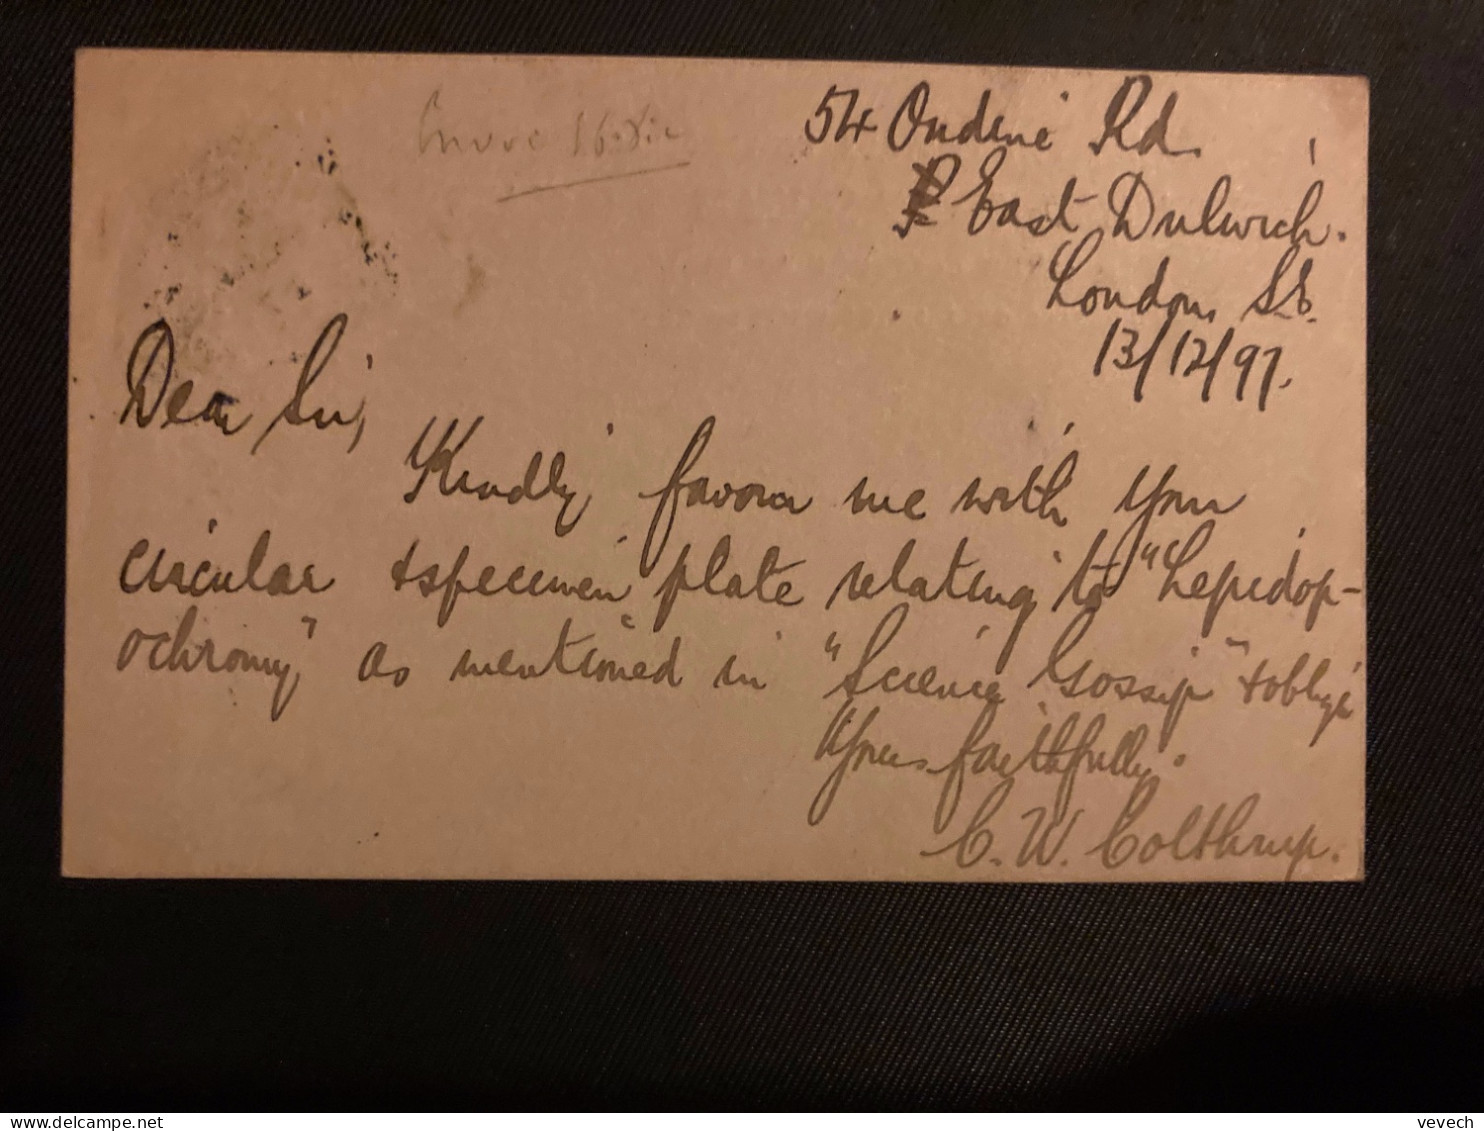 54 Ondine Rd.
East Dulwich.
London, S.E.
13/12/97.
Dear Sir,
Kindly favour me with your
circular & specimen plate relating to "Lepidop-
ochromy" as mentioned in "Science Gossip" & oblige
Yours faithfully.
C. W. Colthrup.
vevech